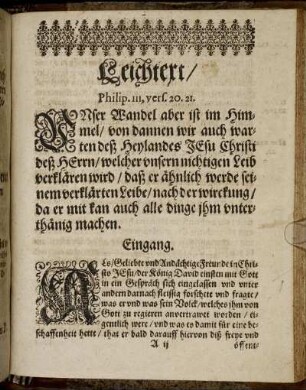 Leichtext/
Philip. III, vers. 20. 21.
UNser Wandel aber ist im Him-
mel/ von dannen wir auch war-
ten deß Heylandes JEsu Christi
deß HErrn/ welcher unsern nichtigen Leib
verklären wird/ daß er ähnlich werde sei-
nem verklärten Leibe/ nach der wirckung/
da er mit kan auch alle dinge jhm unter-
thänig machen.
Eingang.
ALs/ Geliebte und Andächtige Freunde in Chri-
sto JEsu/ der König David einsten mit Gott
in ein Gespräch sich eingelassen und unter
andern darnach fleissig forschete und fragte/
was er und was sein Volck/ welches ihm von
Gott zu regieren anvertrawet worden/ ei-
gentlich were/ und was es damit für eine be-
schaffenheit hette/ that er bald darauff hiervon diß freye und
A ij
öffent/